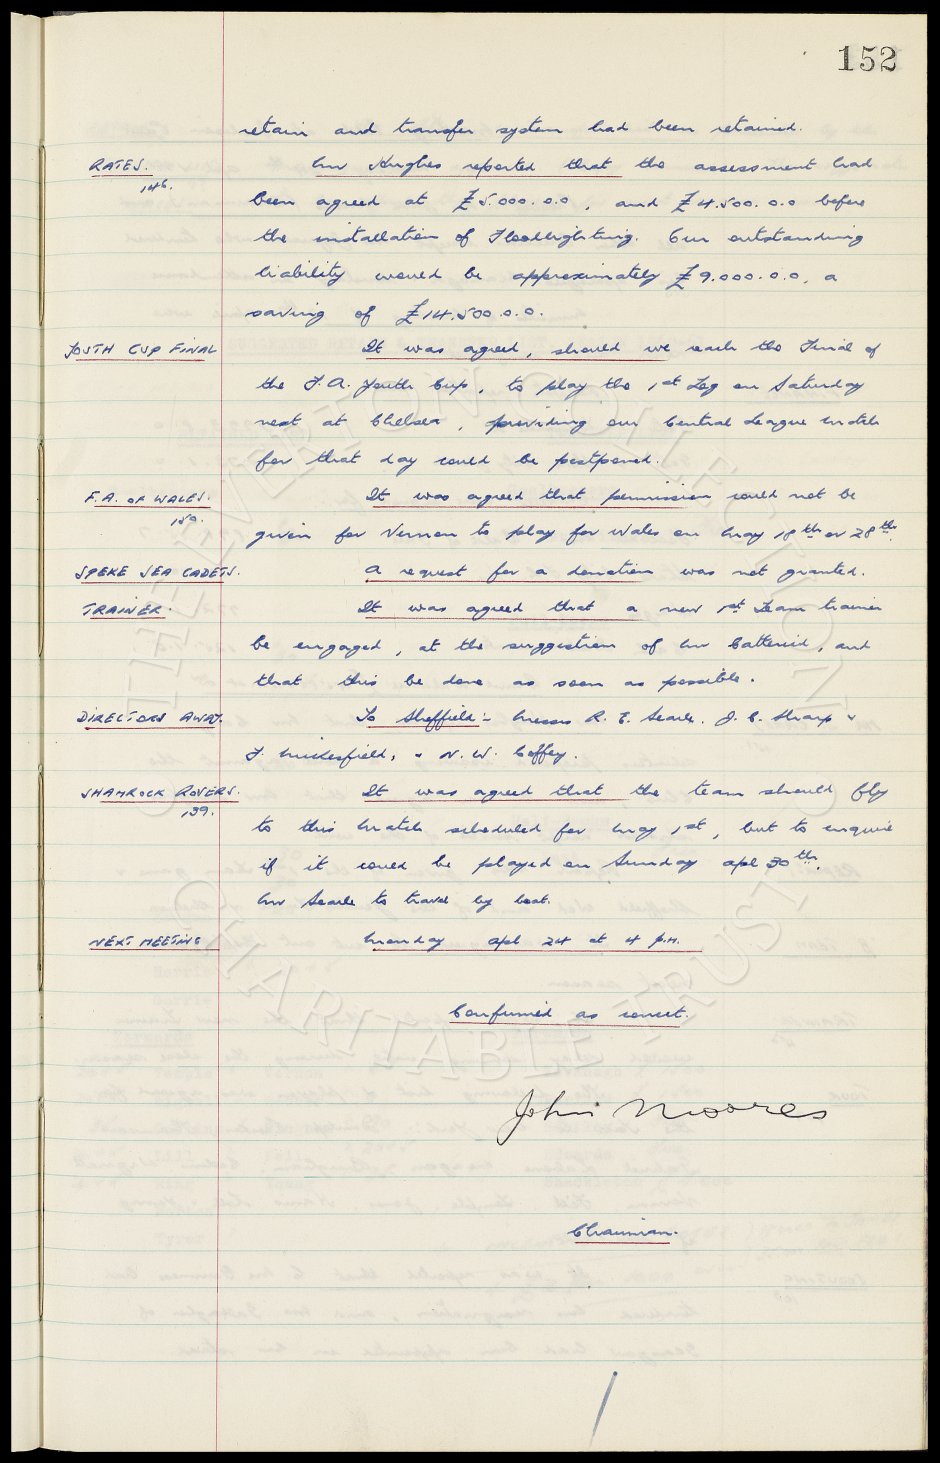 152
retain and transfer system had been retained.
RATES. Mr Hughes reported that the assessment had
146.
been agreed at £5.000.0.0, and £4.500.0.0 before
the installation of Floodlighting. Our outstanding
liability would be approximately £9.000.0.0, a
saving of £14.500.0.0.
YOUTH CUP FINAL It was agreed, should we reach the Final of
the F.A. Youth Cup, to play the 1st Leg on Saturday
next at Chelsea, providing our Central League match
for that day could be postponed.
F.A. OF WALES. It was agreed that permission could not be
150.
given for Vernon to play for Wales on May 18th or 28th.
SPEKE SEA CADETS. A request for a donation was not granted.
TRAINER. It was agreed that a new 1st Team trainer
be engaged, at the suggestion of Mr Catterick, and
that this be done as soon as possible.
DIRECTORS AWAY. To Sheffield:- Messrs R. E. Searle. J. C. Sharp &
F. Micklesfield, & N. W. Coffey.
SHAMROCK ROVERS. It was agreed that the team should fly
139.
to this match scheduled for May 1st, but to enquire
if it could be played on Sunday Apl 30th.
Mr Searle to travel by boat.
NEXT MEETING Monday Apl 24 at 4 P.M.
Confirmed as correct.
John Moores
Chairman.
THE EVERTON COLLECTION
CHARITABLE TRUST